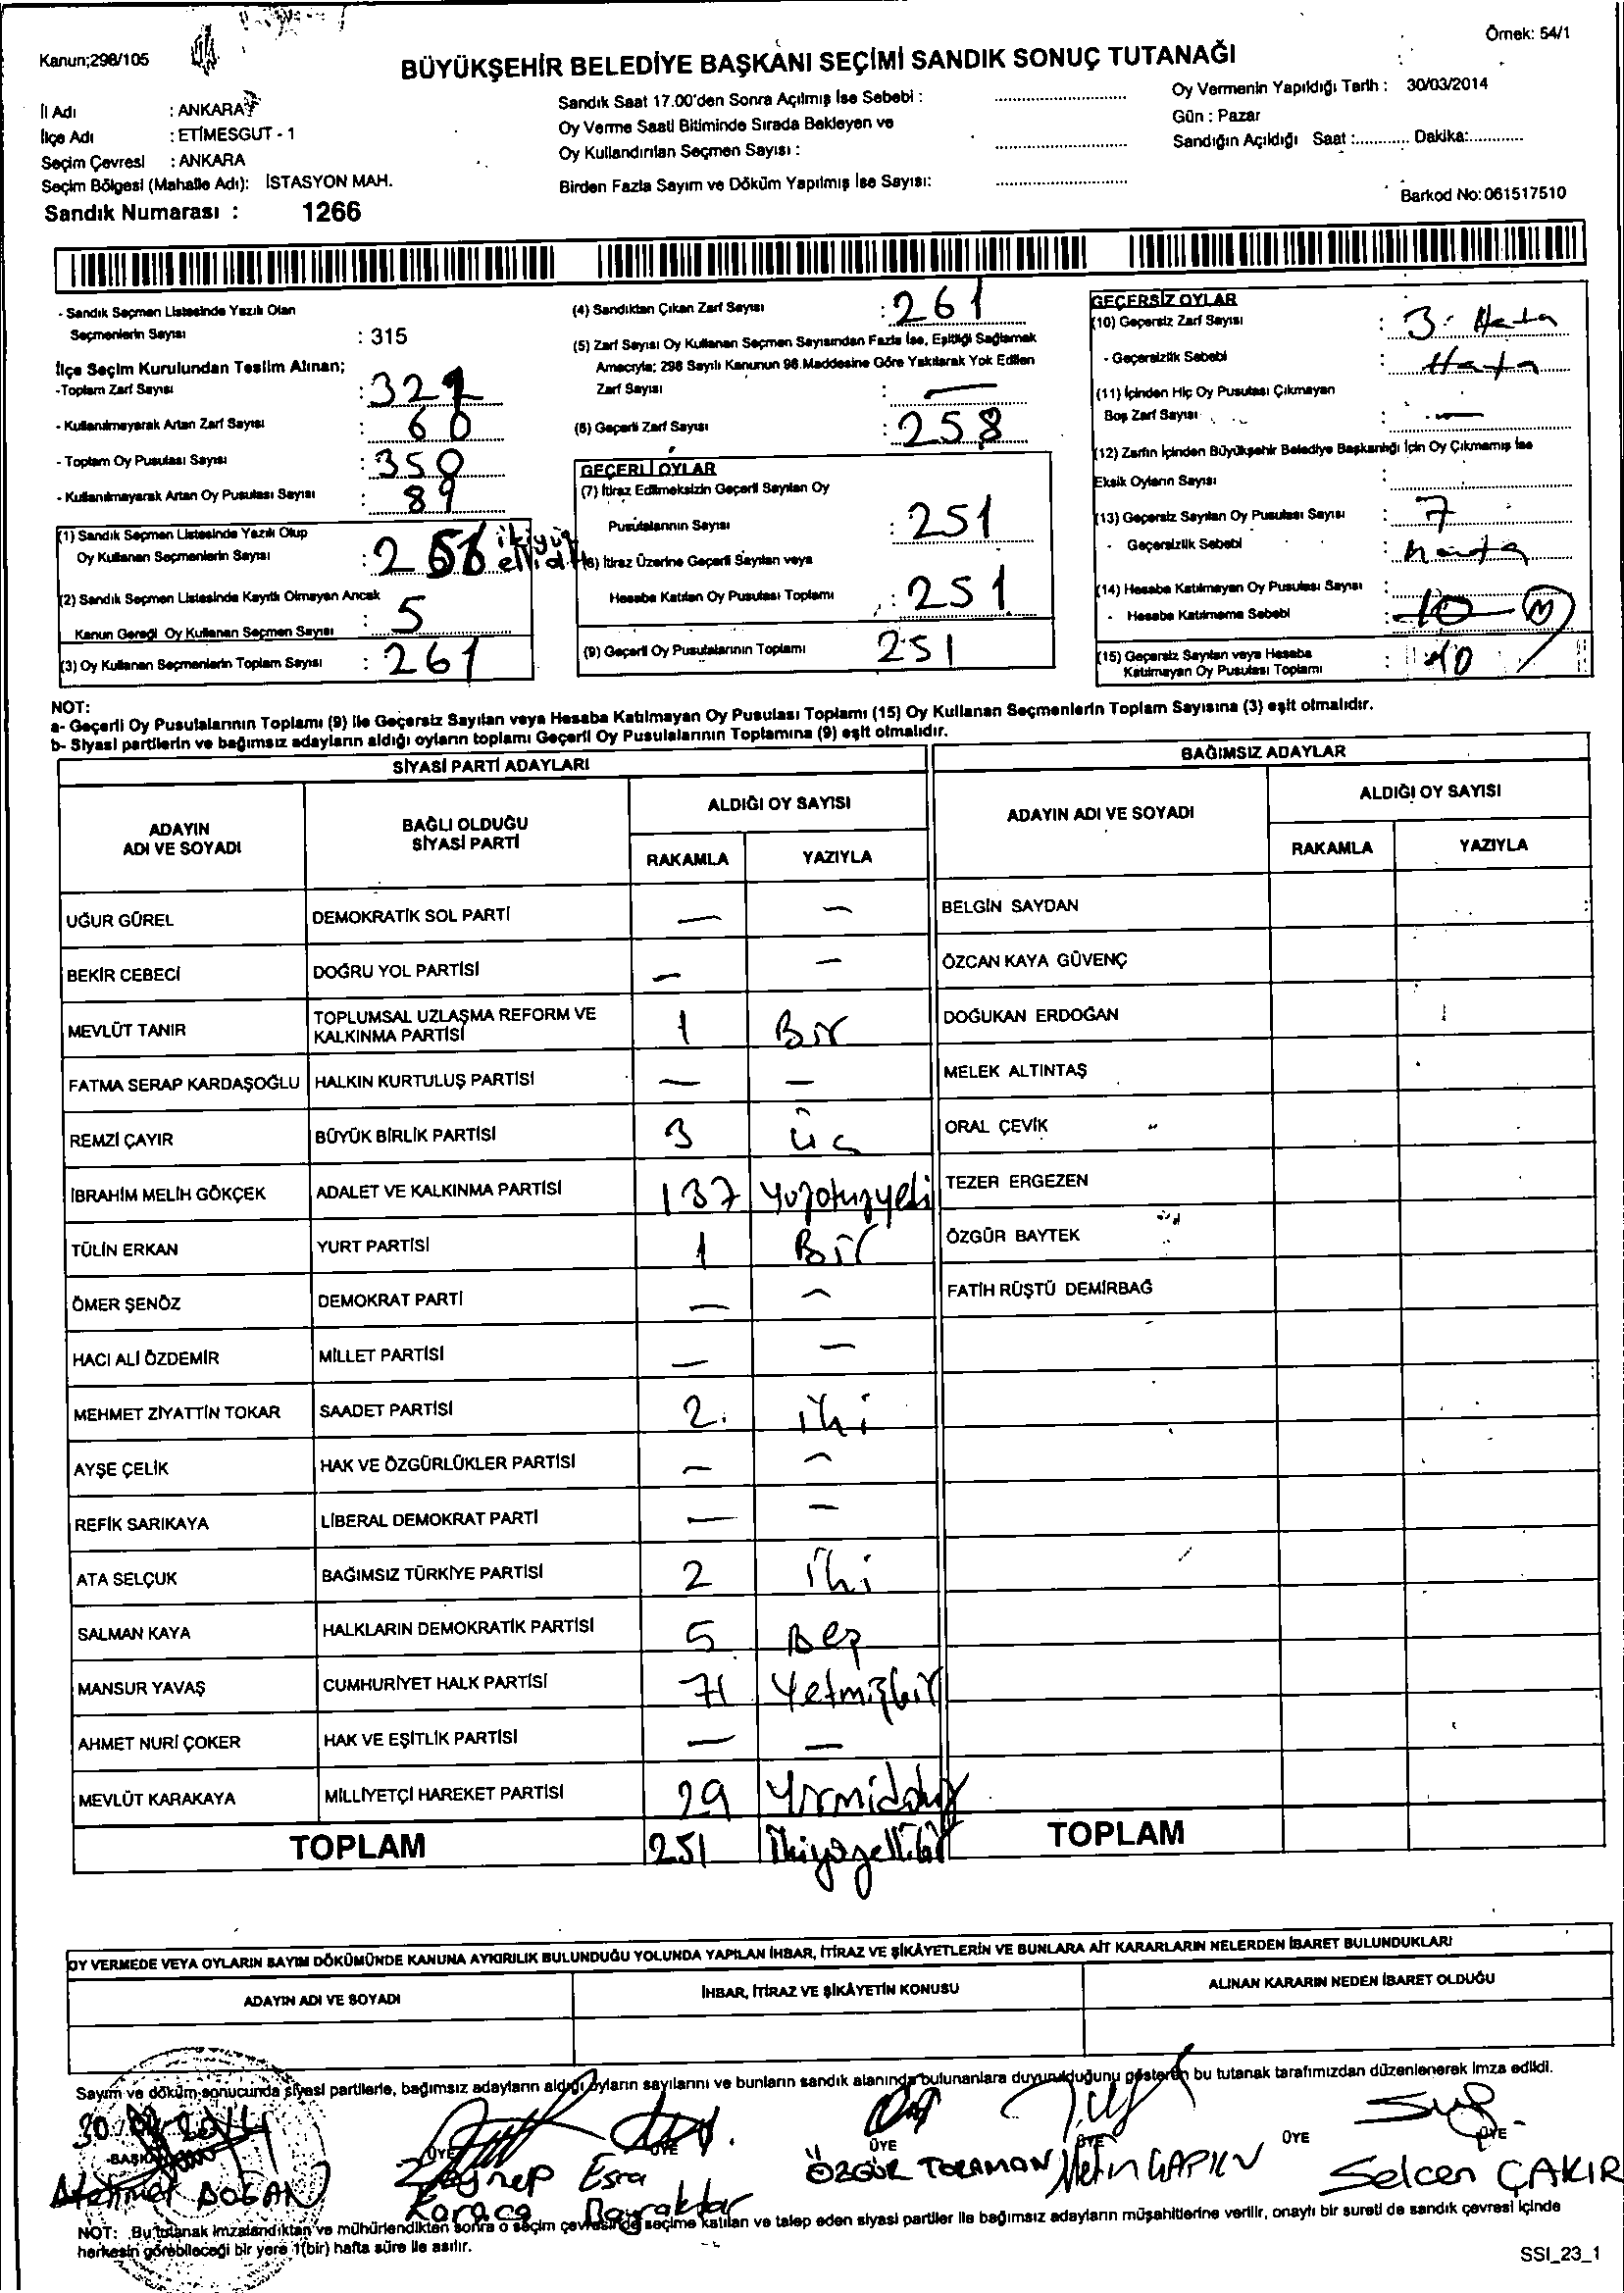 Örnek: 54/1
Kanun;298/105
BÜYÜKŞEHİR BELEDİYE BAŞKANI SEÇİMİ SANDIK SONUÇ TUTANAĞI
İl Adı : ANKARA
İlçe Adı : ETİMESGUT - 1
Seçim Çevresi : ANKARA
Seçim Bölgesi (Mahalle Adı): İSTASYON MAH.
Sandık Numarası : 1266
Sandık Saat 17.00'den Sonra Açılmış İse Sebebi :
Oy Verme Saati Bitiminde Sırada Bekleyen ve
Oy Kullandırılan Seçmen Sayısı :
Birden Fazla Sayım ve Döküm Yapılmış İse Sayısı:
Oy Vermenin Yapıldığı Tarih : 30/03/2014
Gün : Pazar
Sandığın Açıldığı Saat :............ Dakika:............
Barkod No: 061517510
- Sandık Seçmen Listesinde Yazılı Olan
Seçmenlerin Sayısı : 315
İlçe Seçim Kurulundan Teslim Alınan;
-Toplam Zarf Sayısı : 321
- Kullanılmayarak Artan Zarf Sayısı : 60
- Toplam Oy Pusulası Sayısı : 350
- Kullanılmayarak Artan Oy Pusulası Sayısı : 89
(1) Sandık Seçmen Listesinde Yazılı Olup
Oy Kullanan Seçmenlerin Sayısı : 256 ikiyüz ellialtı
(2) Sandık Seçmen Listesinde Kayıtlı Olmayan Ancak
Kanun Gereği Oy Kullanan Seçmen Sayısı : 5
(3) Oy Kullanan Seçmenlerin Toplam Sayısı : 261
(4) Sandıktan Çıkan Zarf Sayısı : 261
(5) Zarf Sayısı Oy Kullanan Seçmen Sayısından Fazla İse, Eşitliği Sağlamak
Amacıyla; 298 Sayılı Kanunun 98.Maddesine Göre Yakılarak Yok Edilen
Zarf Sayısı : —
(6) Geçerli Zarf Sayısı : 258
GEÇERLİ OYLAR
(7) İtiraz Edilmeksizin Geçerli Sayılan Oy
Pusulalarının Sayısı : 251
(8) İtiraz Üzerine Geçerli Sayılan veya
Hesaba Katılan Oy Pusulası Toplamı : 251
(9) Geçerli Oy Pusulalarının Toplamı 251
GEÇERSİZ OYLAR
(10) Geçersiz Zarf Sayısı : 3. Hata
- Geçersizlik Sebebi : Hata
(11) İçinden Hiç Oy Pusulası Çıkmayan
Boş Zarf Sayısı : —
(12) Zarfın İçinden Büyükşehir Belediye Başkanlığı İçin Oy Çıkmamış İse
Eksik Oyların Sayısı :
(13) Geçersiz Sayılan Oy Pusulası Sayısı : 7
- Geçersizlik Sebebi : Hata
(14) Hesaba Katılmayan Oy Pusulası Sayısı :
- Hesaba Katılmama Sebebi : 10
(15) Geçersiz Sayılan veya Hesaba
Katılmayan Oy Pusulası Toplamı : 10
NOT:
a- Geçerli Oy Pusulalarının Toplamı (9) ile Geçersiz Sayılan veya Hesaba Katılmayan Oy Pusulası Toplamı (15) Oy Kullanan Seçmenlerin Toplam Sayısına (3) eşit olmalıdır.
b- Siyasi partilerin ve bağımsız adayların aldığı oyların toplamı Geçerli Oy Pusulalarının Toplamına (9) eşit olmalıdır.
SİYASİ PARTİ ADAYLARI
ADAYIN ADI VE SOYADI BAĞLI OLDUĞU SİYASİ PARTİ ALDIĞI OY SAYISI
RAKAMLA YAZIYLA
UĞUR GÜREL DEMOKRATİK SOL PARTİ — —
BEKİR CEBECİ DOĞRU YOL PARTİSİ — —
MEVLÜT TANIR TOPLUMSAL UZLAŞMA REFORM VE KALKINMA PARTİSİ 1 Bir
FATMA SERAP KARDAŞOĞLU HALKIN KURTULUŞ PARTİSİ — —
REMZİ ÇAYIR BÜYÜK BİRLİK PARTİSİ 3 üç
İBRAHİM MELİH GÖKÇEK ADALET VE KALKINMA PARTİSİ 137 Yüzotuzyedi
TÜLİN ERKAN YURT PARTİSİ 1 Bir
ÖMER ŞENÖZ DEMOKRAT PARTİ — —
HACI ALİ ÖZDEMİR MİLLET PARTİSİ — —
MEHMET ZİYATTİN TOKAR SAADET PARTİSİ 2 iki
AYŞE ÇELİK HAK VE ÖZGÜRLÜKLER PARTİSİ — —
REFİK SARIKAYA LİBERAL DEMOKRAT PARTİ — —
ATA SELÇUK BAĞIMSIZ TÜRKİYE PARTİSİ 2 iki
SALMAN KAYA HALKLARIN DEMOKRATİK PARTİSİ 5 Beş
MANSUR YAVAŞ CUMHURİYET HALK PARTİSİ 71 Yetmişbir
AHMET NURİ ÇOKER HAK VE EŞİTLİK PARTİSİ — —
MEVLÜT KARAKAYA MİLLİYETÇİ HAREKET PARTİSİ 29 Yirmidokuz
TOPLAM 251 İkiyüzellibir
BAĞIMSIZ ADAYLAR
ADAYIN ADI VE SOYADI ALDIĞI OY SAYISI
RAKAMLA YAZIYLA
BELGİN SAYDAN
ÖZCAN KAYA GÜVENÇ
DOĞUKAN ERDOĞAN
MELEK ALTINTAŞ
ORAL ÇEVİK
TEZER ERGEZEN
ÖZGÜR BAYTEK
FATİH RÜŞTÜ DEMİRBAĞ
TOPLAM
OY VERMEDE VEYA OYLARIN SAYIM DÖKÜMÜNDE KANUNA AYKIRILIK BULUNDUĞU YOLUNDA YAPILAN İHBAR, İTİRAZ VE ŞİKÂYETLERİN VE BUNLARA AİT KARARLARIN NELERDEN İBARET BULUNDUKLARI
ADAYIN ADI VE SOYADI İHBAR, İTİRAZ VE ŞİKÂYETİN KONUSU ALINAN KARARIN NEDEN İBARET OLDUĞU
Sayım ve döküm sonucunda siyasi partilerle, bağımsız adayların aldığı oyların sayılarını ve bunların sandık alanında bulunanlara duyurulduğunu gösteren bu tutanak tarafımızdan düzenlenerek imza edildi.
30.03.2014
BAŞKAN ÜYE ÜYE ÜYE ÜYE ÜYE ÜYE
Mehmet DOĞAN Zeynep Karaca Esra Bayraktar ÖZGÜR TORAMAN Metin ÇAPKIN Selcen ÇAKIR
NOT: Bu tutanak imzalandıktan ve mühürlendikten sonra o seçim çevresinde seçime katılan ve talep eden siyasi partiler ile bağımsız adayların müşahitlerine verilir, onaylı bir sureti de sandık çevresi içinde
herkesin görebileceği bir yere 1(bir) hafta süre ile asılır.
SSI_23_1